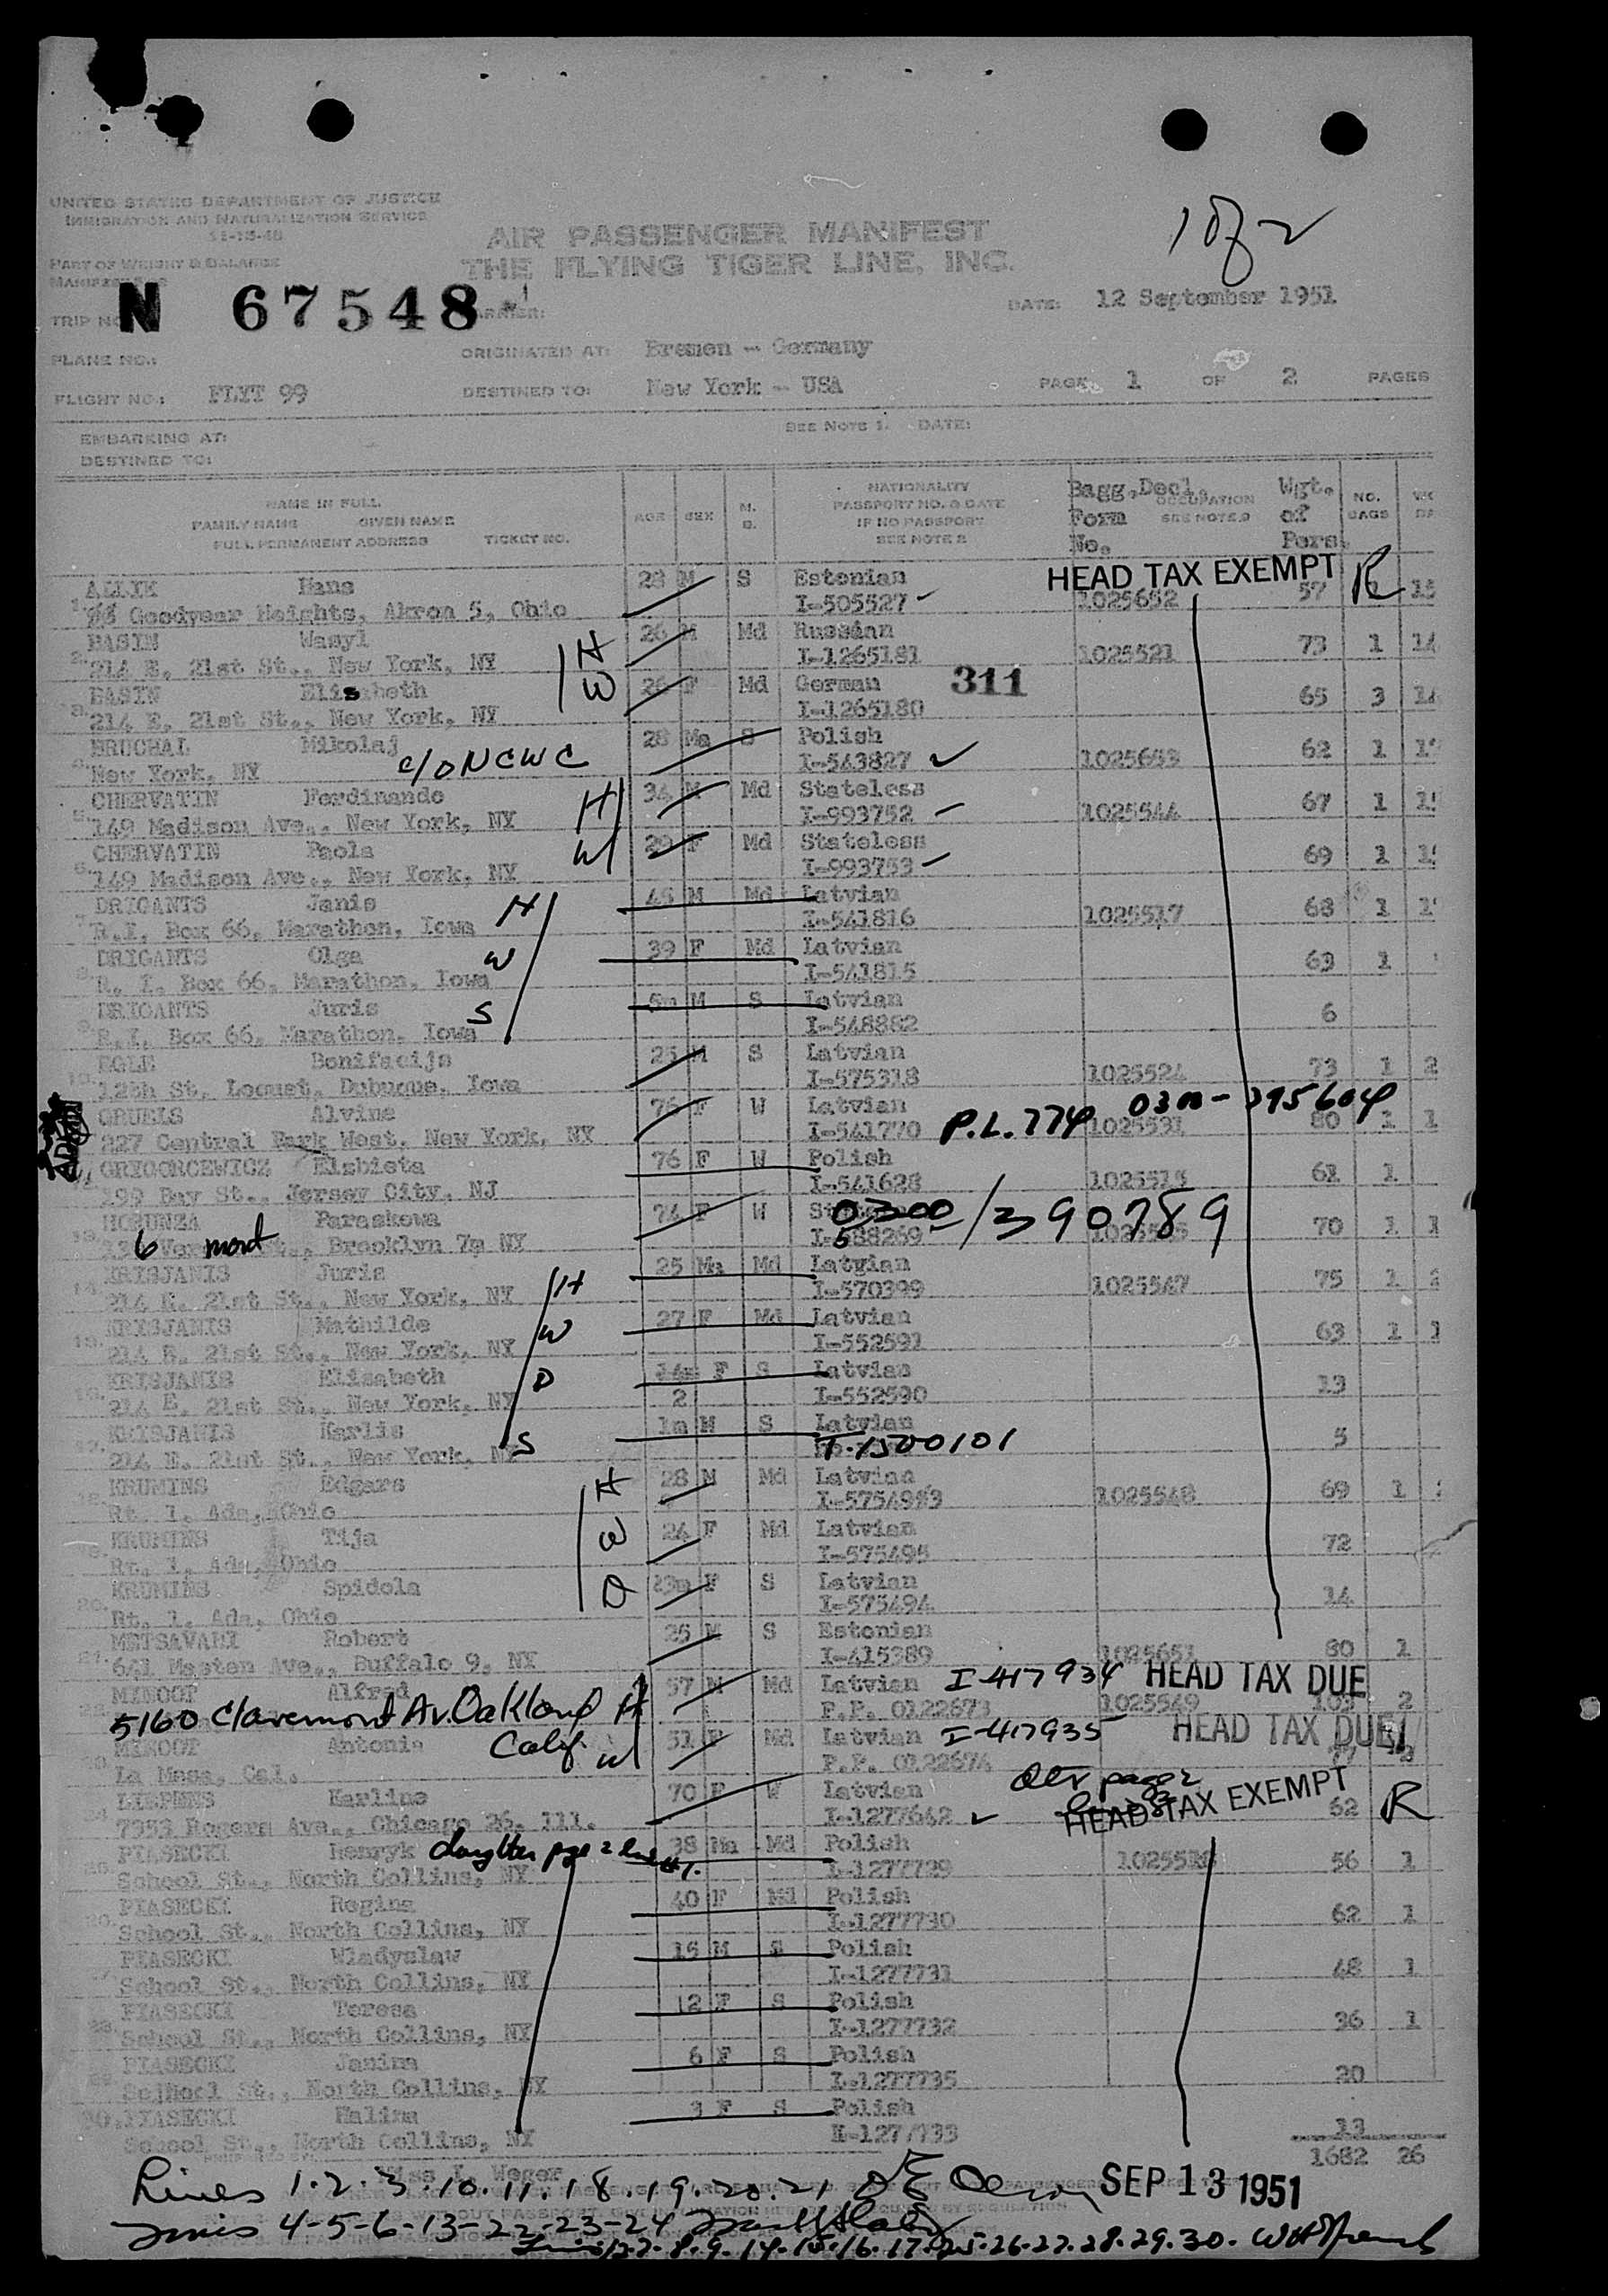 1 of 2
UNITED STATES DEPARTMENT OF JUSTICE
IMMIGRATION AND NATURALIZATION SERVICE
11-15-48
AIR PASSENGER MANIFEST
THE FLYING TIGER LINE, INC.
PART OF WEIGHT & BALANCE
MANIFEST
TRIP NO
N 67548
DATE: 12 September 1951
PLANE NO.:
ORIGINATED AT: Bremen - Germany
FLIGHT NO.: FLYT 99
DESTINED TO: New York - USA
PAGE 1 OF 2 PAGES
EMBARKING AT:
DESTINED TO:
SEE NOTE 1. DATE:
NAME IN FULL
FAMILY NAME GIVEN NAME
FULL PERMANENT ADDRESS TICKET NO.
AGE SEX M. S.
NATIONALITY
PASSPORT NO. & DATE
IF NO PASSPORT
SEE NOTE 2
Bagg. Decl. Form No.
OCCUPATION
Wgt. of Pers.
NO. BAGS
ALLIK Hans 28 M S Estonian HEAD TAX EXEMPT R
1. Goodyear Heights, Akron 5, Ohio I-505527 1025652 57
BASIN Wasyl H 26 M Md Russian
2. 214 E. 21st St., New York, NY I-1265181 1025521 73 1
BASIN Elisabeth W 26 F Md German 311
3. 214 E. 21st St., New York, NY I-1265180 65 3
BRUCHAL Mikolaj c/o NCWC 28 Ma S Polish
4. New York, NY I-543827 1025653 62 1
CHERVATIN Ferdinando H 34 M Md Stateless
5. 149 Madison Ave., New York, NY I-993752 1025544 67 1
CHERVATIN Paola W 29 F Md Stateless
6. 149 Madison Ave., New York, NY I-993753 69 1
DRIGANTS Janis H 45 M Md Latvian
7. R.I. Box 66, Marathon, Iowa I-541816 1025517 68 1
DRIGANTS Olga W 39 F Md Latvian
8. R. I. Box 66, Marathon, Iowa I-541815 63 1
DRIGANTS Juris S 5m M S Latvian
9. R.I. Box 66, Marathon, Iowa I-548882 6
EGLE Bonifacijs 25 M S Latvian
10. 12th St. Locust, Dubuque, Iowa I-575318 1025524 73 1 2
GRUELS Alvine 76 F W Latvian 0300-395604
11. 227 Central Park West, New York, NY I-541770 P.L. 774 1025531 80 1 1
GRIGORCEWICZ Elsbieta 76 F W Polish
199 Bay St., Jersey City, NJ I-541628 1025515 61 1
HORUNZA Paraskewa 74 F W 0300/390789
13. Brooklyn 7, NY 70 1 1
KRISJANIS Juris H 25 Ma Md Latvian
14. 214 E. 21st St., New York, NY I-570399 1025547 75 1
KRISJANIS Mathilde W 27 F Md Latvian
15. 214 E. 21st St., New York, NY I-552591 63 1
KRISJANIS Elizabeth D F S Latvian
16. 214 E. 21st St., New York, NY 2 I-552590 13
KRISJANIS Karlis S 1m M S Latvian
17. 214 E. 21st St., New York, NY T-1500101 5
KRUMINS Edgars H 28 M Md Latvian
18. Rt. 1, Ada, Ohio 1025548 69 1
KRUMINS Tija W 24 F Md Latvian
19. Rt. 1, Ada, Ohio I-575495 72
KRUMINS Spidola D 23m F S Latvian
20. Rt. 1, Ada, Ohio I-575494 14
METSAVAHI Robert 25 M S Estonian
21. 641 Masten Ave., Buffalo 9, NY I-415389 1025651 80 1
MINOOT Alfred H 57 M Md Latvian I-417934 HEAD TAX DUE
5160 Claremont Av. Oakland Calif. P.P. 0122673 1025549 2
MINOOT Antonia W 51 F Md Latvian I-417935 HEAD TAX DUE
La Mesa, Cal. P.P. 0122674
LIEPINS Karline 70 F W Latvian HEAD TAX EXEMPT R
7353 Rogers Ave., Chicago 26, Ill. I-1277642 62
PIASECKI Henryk daughter page 2 line # 1. 38 Ma Md Polish
25. School St., North Collins, NY I-1277729 56 1
PIASECKI Regina 40 F Md Polish
School St., North Collins, NY I-1277730 62 1
PIASECKI Wladyslaw 15 M S Polish
School St., North Collins, NY I-1277731 48 1
PIASECKI Teresa 12 F S Polish
School St., North Collins, NY I-1277732 36 1
PIASECKI Janina 6 F S Polish
School St., North Collins, NY I-1277735 20
30. PIASECKI Halina 3 F S Polish
School St., North Collins, NY 13
1682 26
Miss L. Weger
Lines 1.2.3.10.11.18.19.20.21 SEP 13 1951
Lines 4-5-6-13-22-23-24
Lines 12.7.8.9.14.15.16.17.25.26.27.28.29.30.